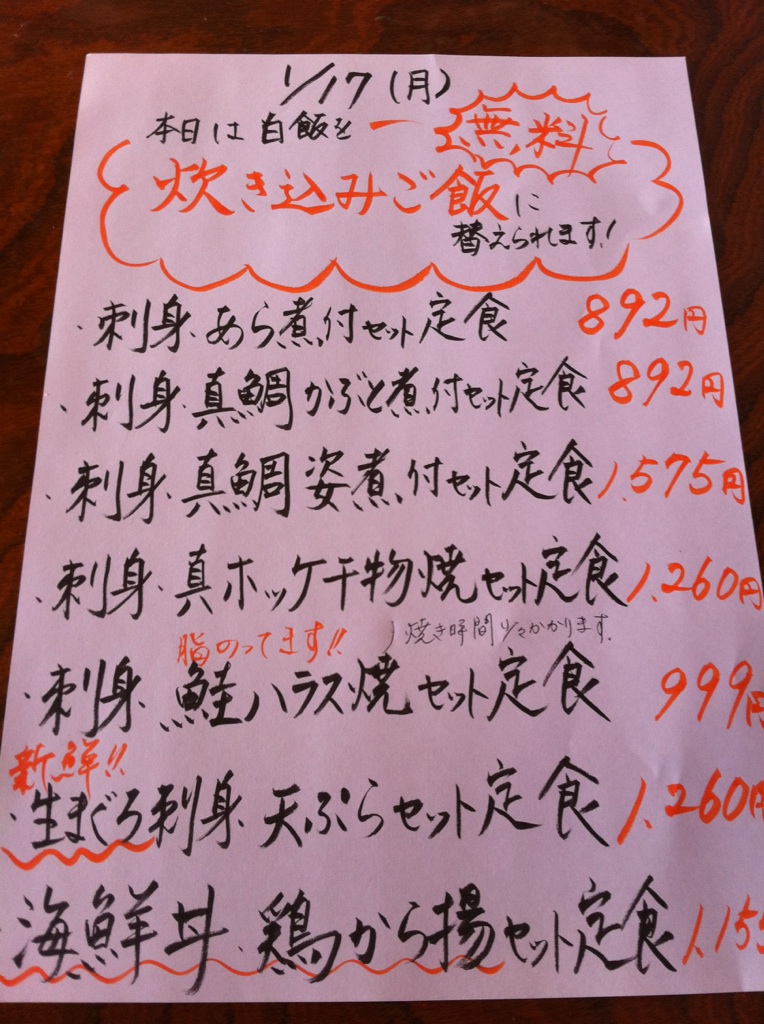 1/17(月)
本日は白飯を 無料
炊き込みご飯に
替えられます!
・刺身、あら煮付セット定食 892円
・刺身、真鯛かぶと煮付セット定食 892円
・刺身、真鯛姿煮付セット定食 1,575円
・刺身、真ホッケ干物焼セット定食 1,260円
脂のってます!! 焼き時間かかります。
・刺身、鮭ハラス焼セット定食 999円
新鮮!!
・生まぐろ刺身、天ぷらセット定食 1,260円
・海鮮丼、鶏から揚セット定食 1,155